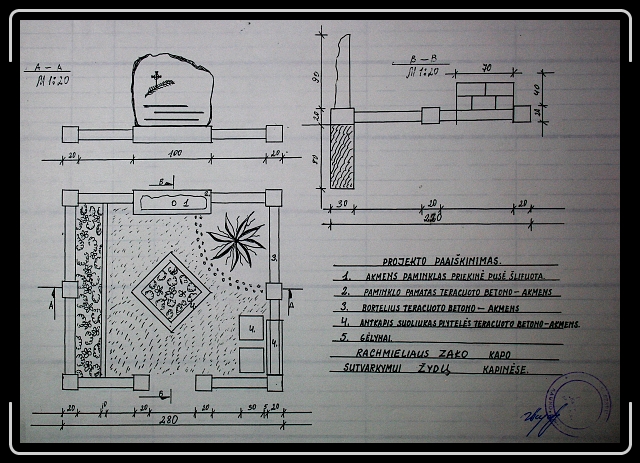 A – A
M 1:20
B – B
M 1:20
70
90
40
20
20
80
20
100
20
30
20
20
280
B
1
2
3.
4.
4.
A
A
B
20
20
20
50
5
20
280
PROJEKTO PAAIŠKINIMAS.
1. AKMENS PAMINKLAS PRIEKINĖ PUSĖ ŠLIFUOTA.
2. PAMINKLO PAMATAS TERACUOTO BETONO – AKMENS
3. BORTELIUS TERACUOTO BETONO – AKMENS
4. ANTKAPIS SUOLIUKAS PLYTELĖS TERACUOTO BETONO – AKMENS.
5. GĖLYNAI.
RACHMIELIAUS ZAKO KAPO
SUTVARKYMUI ŽYDŲ KAPINĖSE.